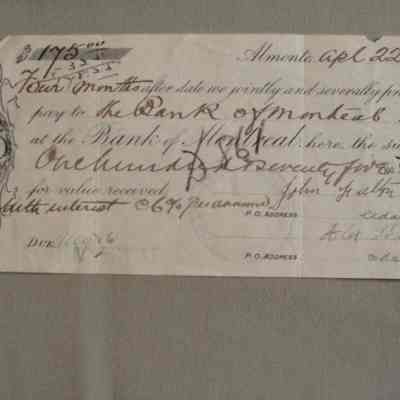 $175.00 Almonte, Apl 22
Four months after date we jointly and severally
pay to the Bank of Montreal
at the Bank of Montreal here, the
One hundred & seventy five
for value received John
with interest @ 6% per annum
P. O. ADDRESS
DUE Aug
P. O. ADDRESS